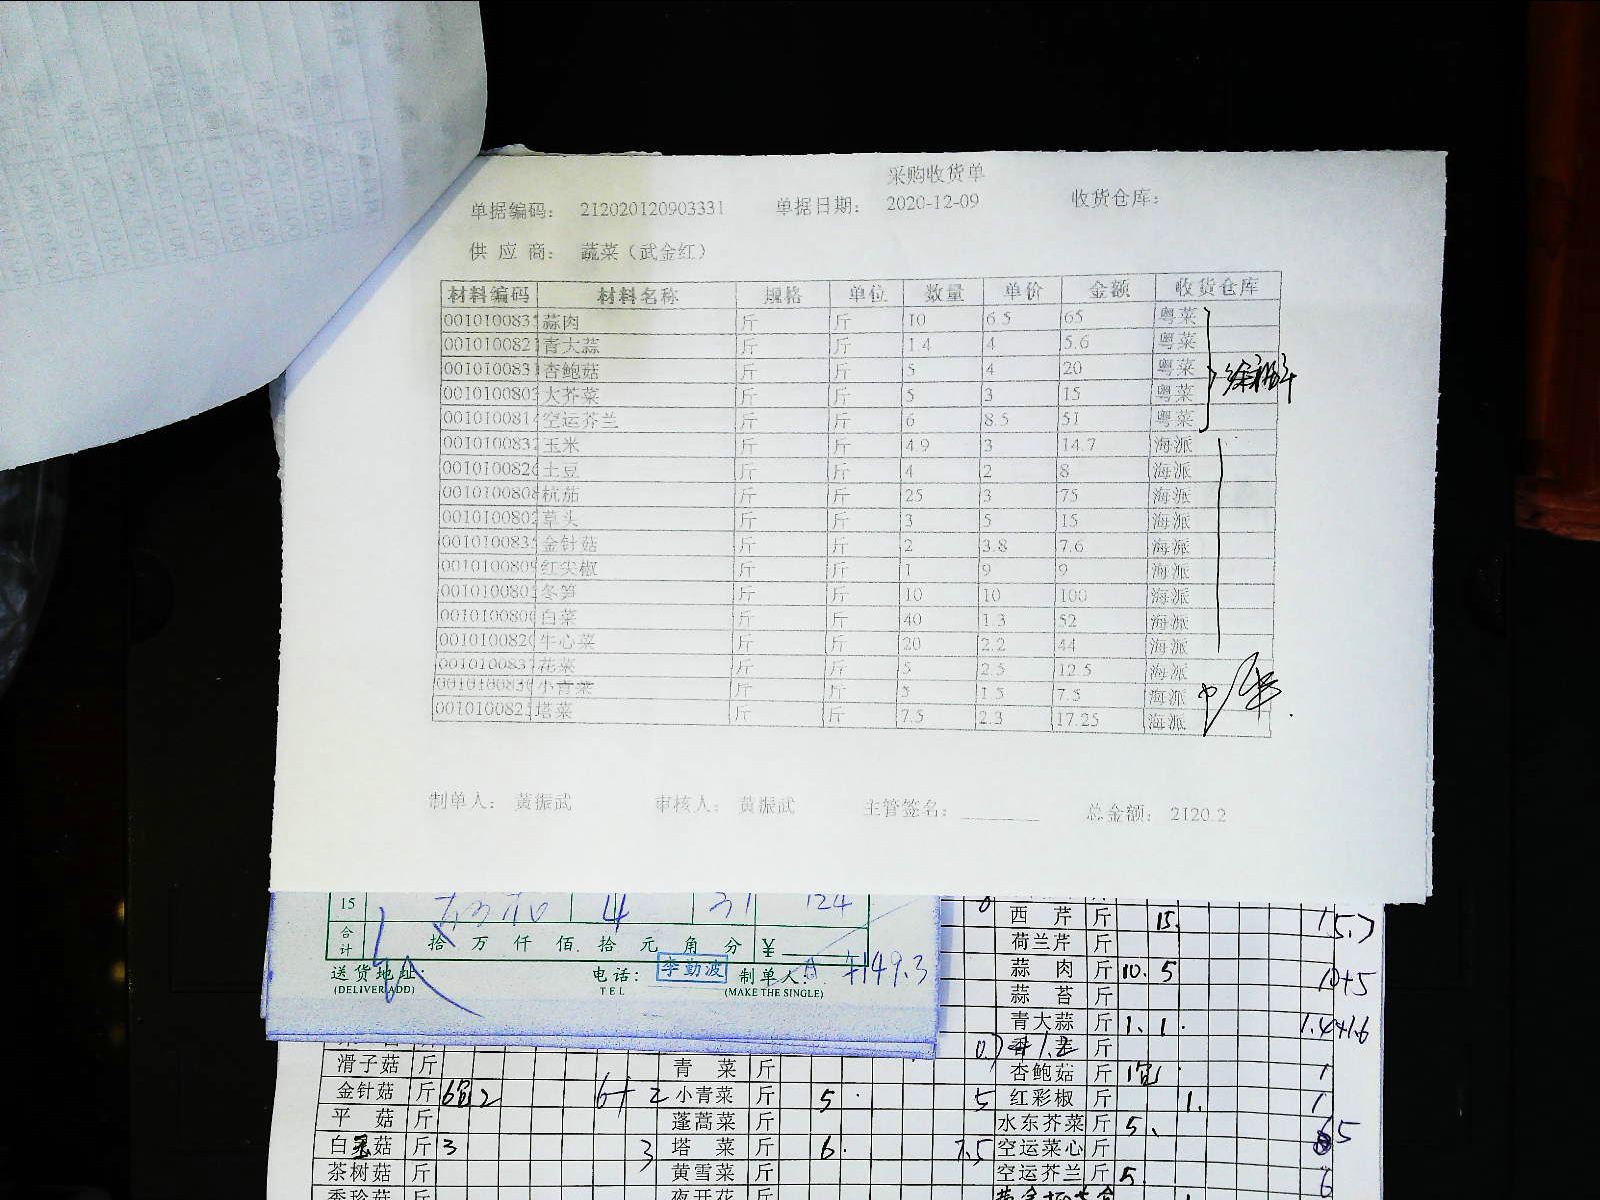 采购收货单
单据编码： 212020120903331 单据日期： 2020-12-09 收货仓库：
供 应 商： 蔬菜（武金红）
材料编码 材料名称 规格 单位 数量 单价 金额 收货仓库
001010083 蒜肉 斤 斤 10 6.5 65 粤菜
001010082 青大蒜 斤 斤 1.4 4 5.6 粤菜
001010083 杏鲍菇 斤 斤 5 4 20 粤菜
001010080 大芥菜 斤 斤 5 3 15 粤菜
001010081 空运芥兰 斤 斤 6 8.5 51 粤菜
001010083 玉米 斤 斤 4.9 3 14.7 海派
001010082 土豆 斤 斤 4 2 8 海派
001010080 杭茄 斤 斤 25 3 75 海派
001010080 草头 斤 斤 3 5 15 海派
001010083 金针菇 斤 斤 2 3.8 7.6 海派
001010080 红尖椒 斤 斤 1 9 9 海派
001010080 冬笋 斤 斤 10 10 100 海派
001010080 白菜 斤 斤 40 1.3 52 海派
001010082 牛心菜 斤 斤 20 2.2 44 海派
001010083 花菜 斤 斤 5 2.5 12.5 海派
001010083 小青菜 斤 斤 5 1.5 7.5 海派
001010082 塔菜 斤 斤 7.5 2.3 17.25 海派
制单人： 黄振武 审核人： 黄振武 主管签名： 总金额： 2120.2
15 4 31 124
合计 拾 万 仟 佰 拾 元 角 分 ¥
送货地址： 电话： 李勤波 制单人： ¥149.3
(DELIVER ADD) TEL (MAKE THE SINGLE)
西 芹 斤 15. 15.7
荷兰芹 斤
蒜 肉 斤 10. 5 10+5
蒜 苔 斤
青大蒜 斤 1. 1. 1.4+1.6
斤
滑子菇 斤 青 菜 斤 杏鲍菇 斤 1
金针菇 斤 6 2 6+2 小青菜 斤 5. 5 红彩椒 斤 1. 1
平 菇 斤 蓬蒿菜 斤 水东芥菜 斤 5. 5
白 菇 斤 3 3 塔 菜 斤 6. 7.5 空运菜心 斤
茶树菇 斤 黄雪菜 斤 空运芥兰 斤 5. 6